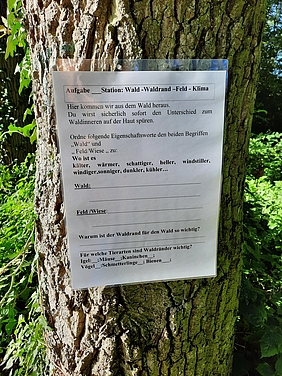 Aufgabe___Station: Wald -Waldrand –Feld - Klima
Hier kommen wir aus dem Wald heraus.
Du wirst sicherlich sofort den Unterschied zum
Waldinneren auf der Haut spüren.
Ordne folgende Eigenschaftsworte den beiden Begriffen
„Wald“ und
„Feld/Wiese“ zu:
Wo ist es
kälter, wärmer, schattiger, heller, windstiller,
windiger,sonniger, dunkler, kühler…
Wald:
Feld /Wiese:
Warum ist der Waldrand für den Wald so wichtig?
Für welche Tierarten sind Waldränder wichtig?
Igel:__;Mäuse__;Kaninchen__;
Vögel__;Schmetterlinge__; Bienen__;